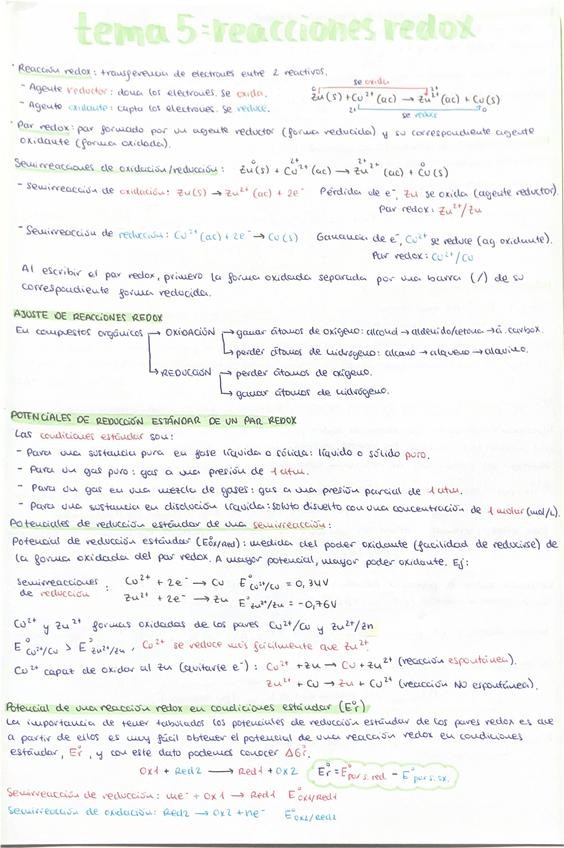 tema 5=reacciones redox
· Reacción redox: transferencia de electrones entre 2 reactivos.
- Agente reductor: dona los electrones. Se oxida.
- Agente oxidante: capta los electrones. Se reduce.
se oxida
0 2+
Zu(s) + Cu²⁺(ac) → Zu²⁺(ac) + Cu(s)
2+ 0
se reduce
· Par redox: par formado por un agente reductor (forma reducida) y su correspondiente agente
oxidante (forma oxidada).
Semirreacciones de oxidación/reducción: Zu(s) + Cu²⁺(ac) → Zu²⁺(ac) + Cu(s)
- Semirreacción de oxidación: Zu(s) → Zu²⁺(ac) + 2e⁻ Pérdida de e⁻, Zu se oxida (agente reductor).
Par redox: Zu²⁺/Zu
- Semirreacción de reducción: Cu²⁺(ac) + 2e⁻ → Cu(s) Ganancia de e⁻, Cu²⁺ se reduce (ag oxidante).
Par redox: Cu²⁺/Cu
Al escribir el par redox, primero la forma oxidada separada por una barra (/) de su
correspondiente forma reducida.
AJUSTE DE REACCIONES REDOX
En compuestos orgánicos → OXIDACIÓN → ganar átomos de oxígeno: alcohol → aldehído/cetona → á. carbox.
→ perder átomos de hidrógeno: alcano → alqueno → alquino.
→ REDUCCIÓN → perder átomos de oxígeno.
→ ganar átomos de hidrógeno.
POTENCIALES DE REDUCCIÓN ESTÁNDAR DE UN PAR REDOX
Las condiciones estándar son:
- Para una sustancia pura en fase líquida o sólida: líquido o sólido puro.
- Para un gas puro: gas a una presión de 1 atm.
- Para un gas en una mezcla de gases: gas a una presión parcial de 1 atm.
- Para una sustancia en disolución líquida: soluto disuelto con una concentración de 1 molar (mol/L).
Potenciales de reducción estándar de una semirreacción:
Potencial de reducción estándar (E°ox/Red): medida del poder oxidante (facilidad de reducirse) de
la forma oxidada del par redox. A mayor potencial, mayor poder oxidante. Ej:
Semirreacciones de reducción : Cu²⁺ + 2e⁻ → Cu E°Cu²⁺/Cu = 0,34V
Zu²⁺ + 2e⁻ → Zu E°Zu²⁺/Zu = -0,76V
Cu²⁺ y Zu²⁺ formas oxidadas de los pares Cu²⁺/Cu y Zu²⁺/Zn
E°Cu²⁺/Cu > E°Zu²⁺/Zn, Cu²⁺ se reduce más fácilmente que Zu²⁺
Cu²⁺ capaz de oxidar al Zu (quitarle e⁻): Cu²⁺ + Zu → Cu + Zu²⁺ (reacción espontánea).
Zu²⁺ + Cu → Zu + Cu²⁺ (reacción NO espontánea).
Potencial de una reacción redox en condiciones estándar (E°r)
La importancia de tener tabulados los potenciales de reducción estándar de los pares redox es que
a partir de ellos es muy fácil obtener el potencial de una reacción redox en condiciones
estándar, E°r, y con este dato podemos conocer ΔG°r.
Ox1 + Red2 → Red1 + Ox2 E°r = E°par s. red. - E°par s. ox.
Semirreacción de reducción: me⁻ + Ox1 → Red1 E°ox1/Red1
Semirreacción de oxidación: Red2 → Ox2 + ne⁻ E°ox2/Red2